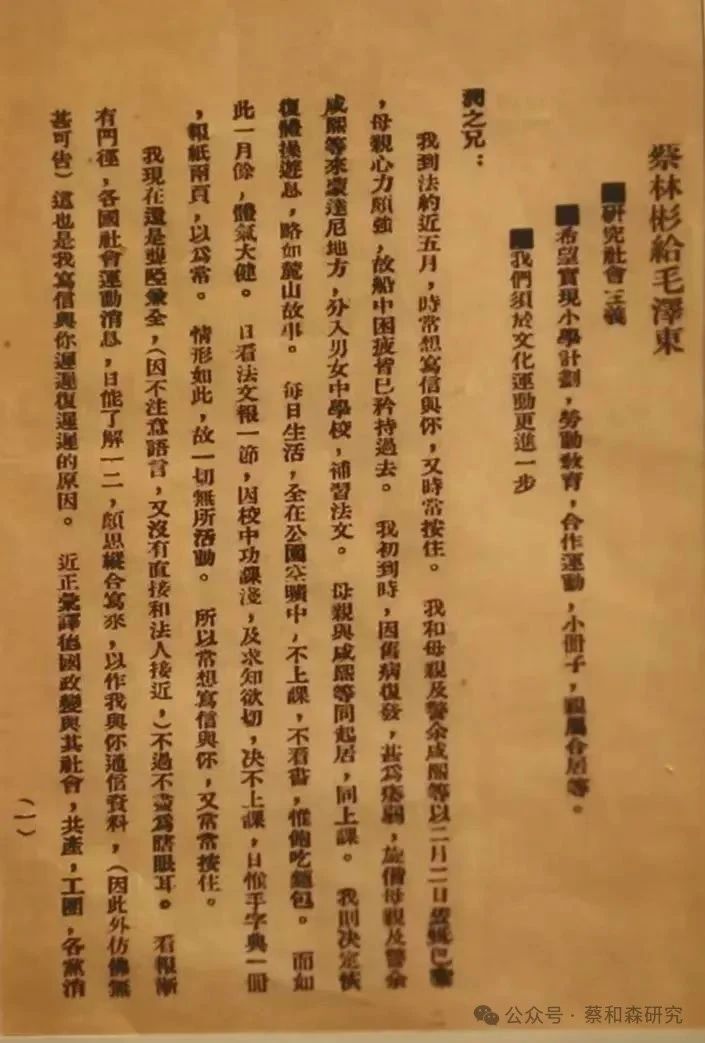 蔡林彬給毛澤東
■研究社會主義
■希望實現小學計劃，勞動教育，合作運動，小冊子，親屬合居等。
■我們須於文化運動更進一步
潤之兄：
我到法約近五月，時常想寫信與你，又時常按住。　我和母親及警余咸熙等以二月二日登岸巴黎
，母親心力頗強，故船中困疲皆已矜持過去。　我初到時，因舊病復發，甚為疲弱，旋偕母親及警余
咸熙等來蒙達尼地方，分入男女中學校，補習法文。　母親與咸熙等同起居，同上課。　我則決定恢
復體操遊息，略如麓山故事。　每日生活，全在公園空曠中，不上課，不看書，惟飽吃麵包。　而如
此一月餘，體氣大健。　日看法文報一節，因校中功課淺，及求知欲切，決不上課，日惟手字典一冊
，報紙兩頁，以為常。　情形如此，故一切無所活動。　所以常想寫信與你，又常常按住。
我現在還是聾啞兼全，（因不注意語言，又沒有直接和法人接近，）不過不盡為瞎眼耳。　看報漸
有門徑，各國社會運動消息，日能了解一二，頗思縱合寫來，以作我與你通信資料，（因此外仿佛無
甚可告）這也是我寫信與你遲遲復遲遲的原因。　近正彙譯德國政變與其社會，共產，工團，各黨消
（一）
公众号·蔡和森研究